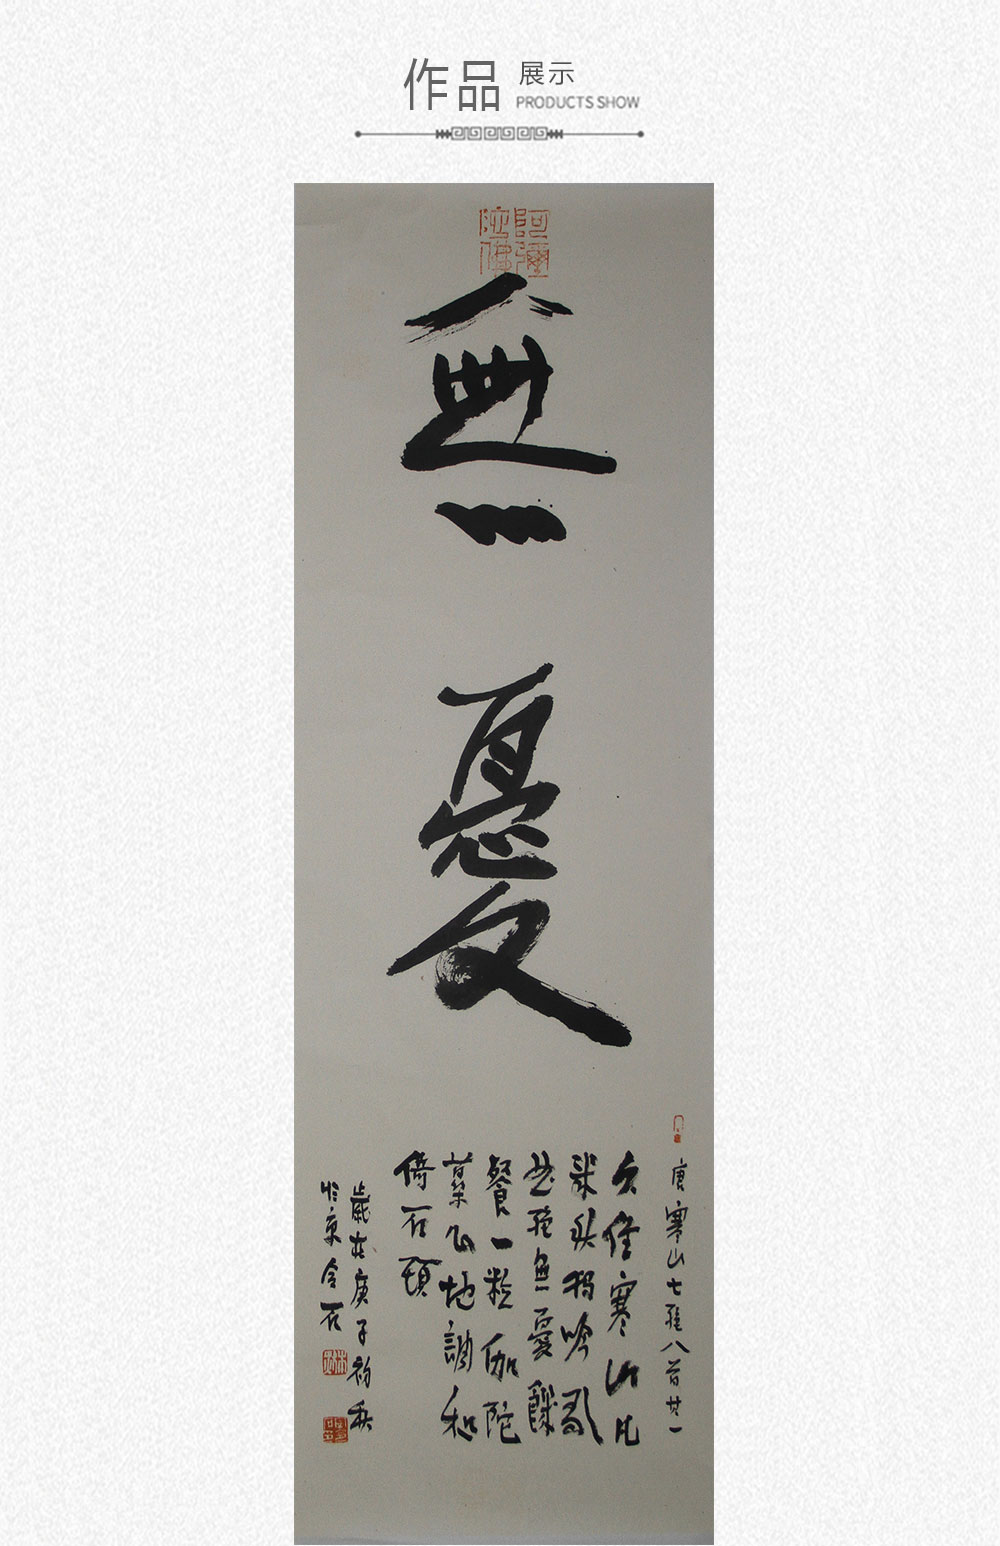 作品 展示
PRODUCTS SHOW
阿彌
陀佛
無憂
唐寒山七絕八首其一
久住寒山凡
幾秋獨吟歌
曲絕無憂饑
餐一粒伽陀
藥心地調和
倚石頭
歲在庚子初秋
於京